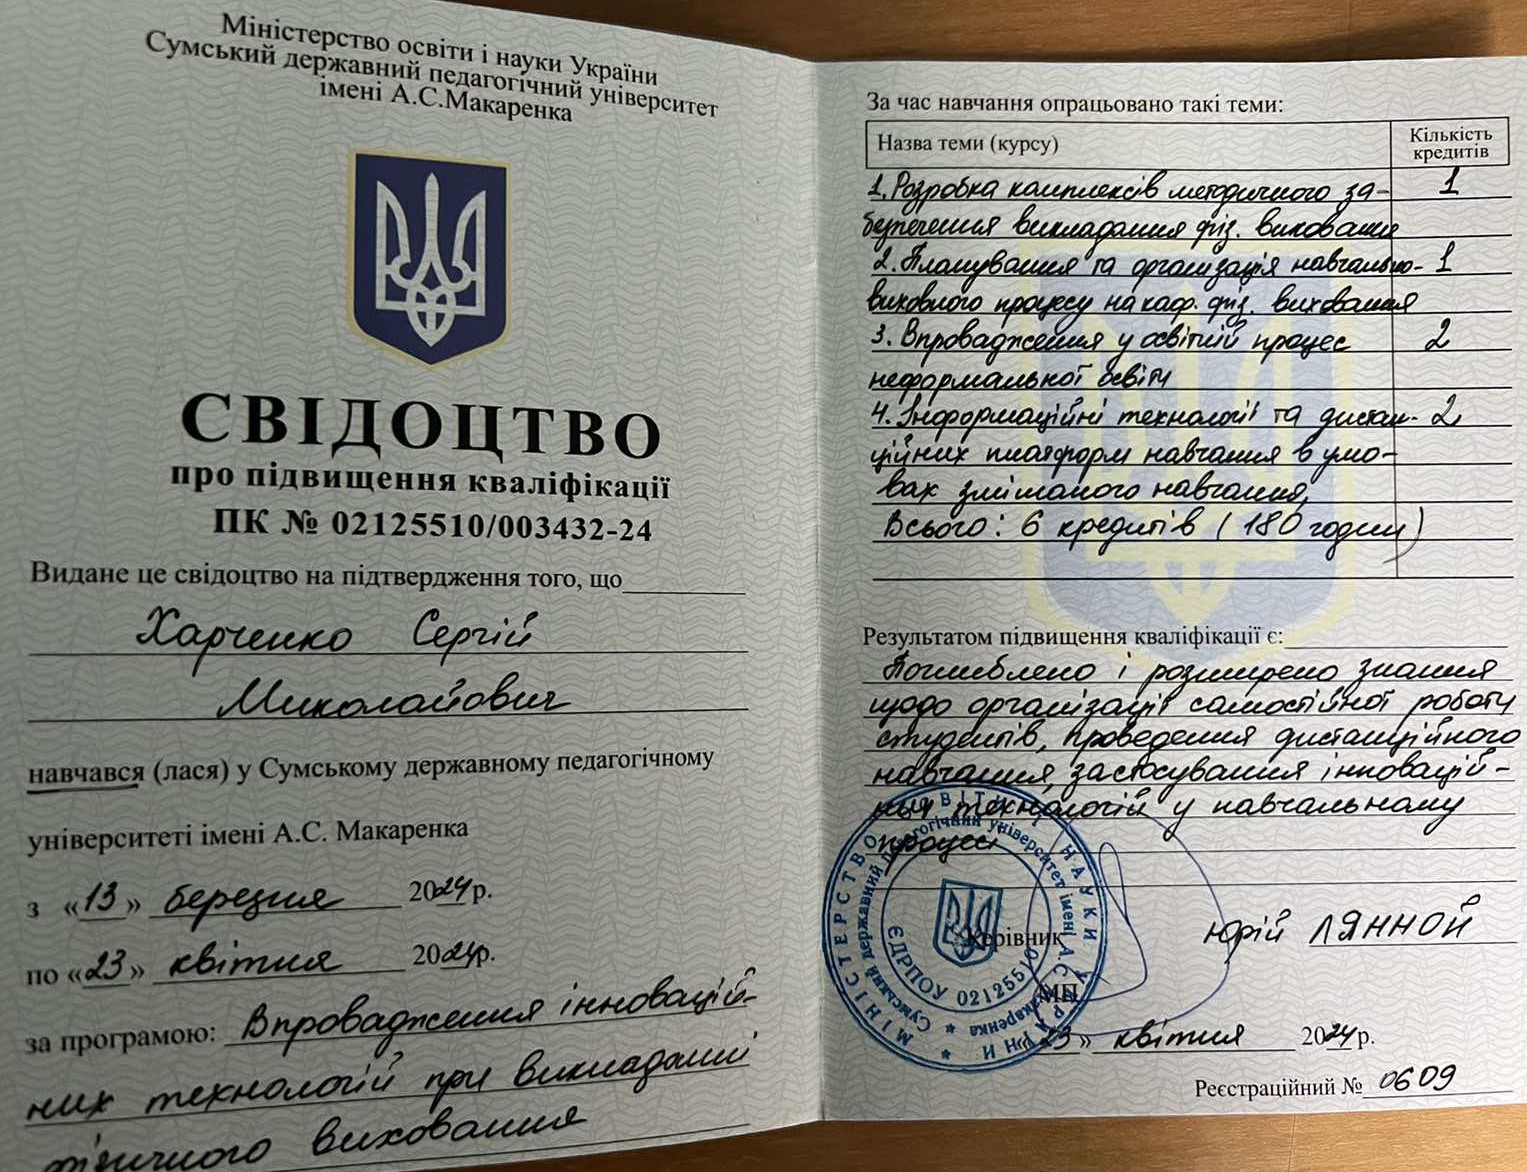 Міністерство освіти і науки України
Сумський державний педагогічний університет
імені А.С.Макаренка
СВІДОЦТВО
про підвищення кваліфікації
ПК № 02125510/003432-24
Видане це свідоцтво на підтвердження того, що
Харченко Сергій
Миколайович
навчався (лася) у Сумському державному педагогічному
університеті імені А.С. Макаренка
з «13» березня 2024 р.
по «23» квітня 2024р.
за програмою: Впровадження інновацій-
них технологій при викладанні
фізичного виховання
За час навчання опрацьовано такі теми:
Назва теми (курсу) Кількість кредитів
1. Розробка комплексів методичного за- 1
безпечення викладання фіз. виховання
2. Планування та організація навчально- 1
виховного процесу на каф. фіз. виховання
3. Впровадження у освітній процес 2
неформальної освіти
4. Інформаційні технології та дистан- 2
ційних платформ навчання в умо-
вах змішаного навчання,
Всього: 6 кредитів (180 годин)
Результатом підвищення кваліфікації є:
Поглиблено і розширено знання
щодо організації самостійної роботи
студентів, проведення дистанційного
навчання, застосування інновацій-
них технологій у навчальному
процесі
Керівник Юрій ЛЯННОЙ
МП
«23» квітня 2024р.
Реєстраційний № 0609
МІНІСТЕРСТВО ОСВІТИ І НАУКИ УКРАЇНИ
Сумський державний педагогічний університет імені А.С. Макаренка
ЄДРПОУ 02125510